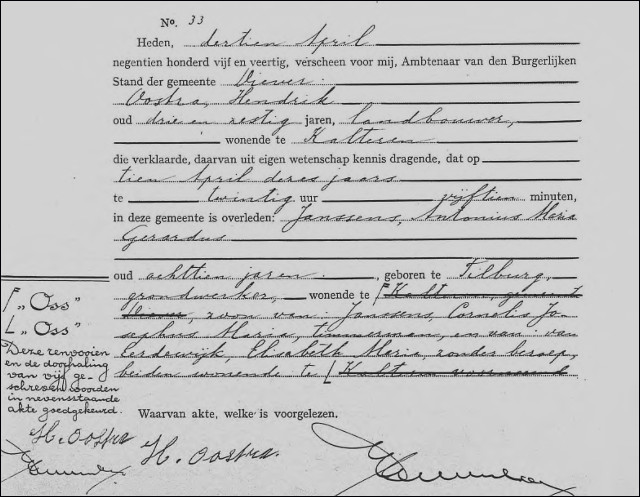 No. 33
Heden, dertien April
negentien honderd vijf en veertig, verscheen voor mij, Ambtenaar van den Burgerlijken
Stand der gemeente Diever
Oostra, Hendrik
oud drie en zestig jaren, landbouwer,
wonende te Kalteren
die verklaarde, daarvan uit eigen wetenschap kennis dragende, dat op
tien April dezes jaars
te twintig uur vijftien minuten,
in deze gemeente is overleden: Janssens, Antonius Maria
Gerardus
oud achttien jaren, geboren te Tilburg,
grondwerker, wonende te Γ Kalteren, gemeente
Diever, zoon van: Janssens, Cornelis Jo-
sephus Maria, timmerman, en van: van
Eerdewijk, Elisabeth Maria, zonder beroep,
beiden wonende te L Kalteren voornoemd
Γ „Oss”
L „Oss”
Deze renvooien
en de doorhaling
van vijf ge-
schreven woorden
in nevenstaande
akte goedgekeurd.
Waarvan akte, welke is voorgelezen.
H. Oostra
H. Oostra.